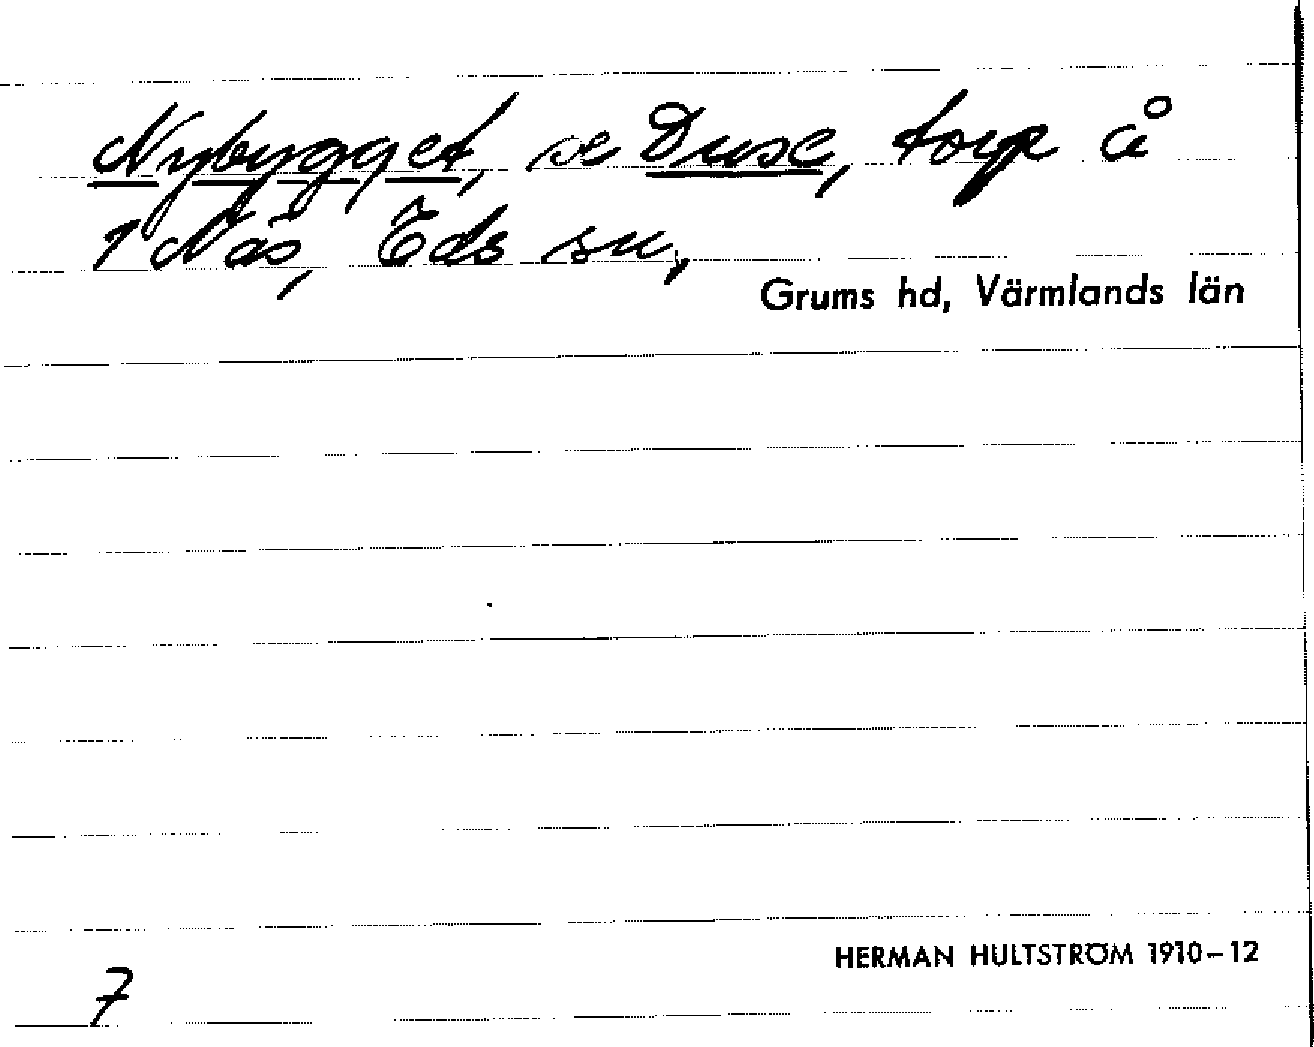 Nybygget, se Duse, torp å
1 Näs, Eds sn,
Grums hd, Värmlands län
HERMAN HULTSTRÖM 1910-12
7